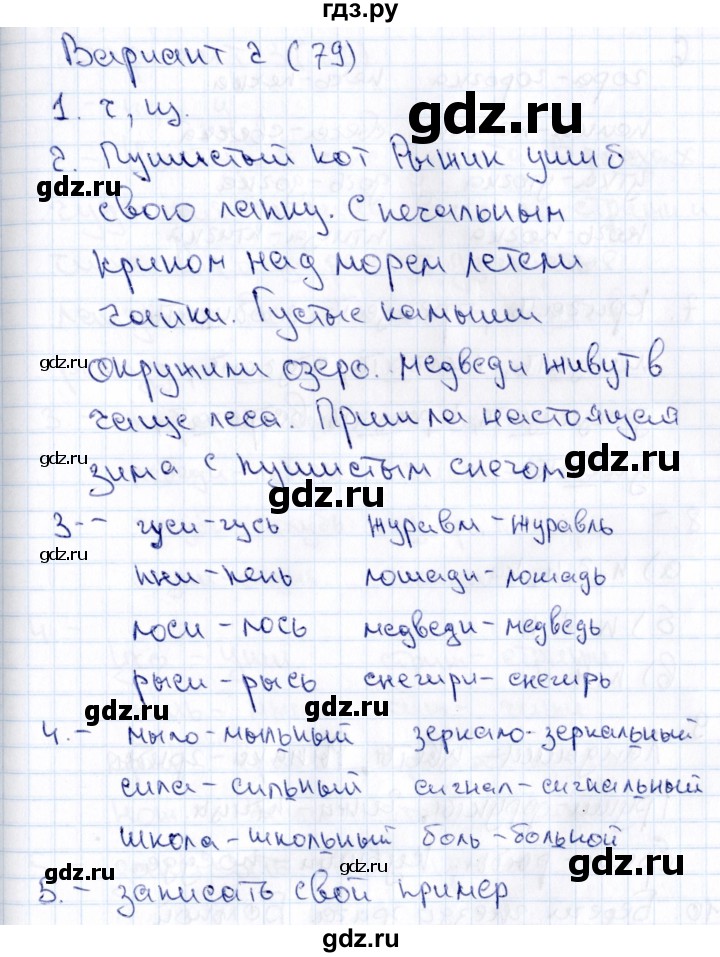 гдз.ру
Вариант 2 (79)
1. ч, щ.
gdz.ru
2. Пушистый кот Рыжик ушиб
gdz.ru
свою лапку. С печальным
криком над морем летели
чайки. Густые камыши
gdz.ru
gdz.ru
окружили озеро. Медведи живут в
чаще леса. Пришла настоящая
gdz.ru
зима с пушистым снегом
gdz.ru
3-- гуси-гусь журавли-журавль
gdz.ru
пни-пень лошади-лошадь
лоси-лось медведи-медведь
рыси-рысь снегири-снегирь
gdz.ru gdz.ru
4.- мыло-мыльный зеркало-зеркальный
сила-сильный сигнал-сигнальный
школа-школьный боль-больной
gdz.ru gdz.ru
5.- записать свой пример
gdz.ru